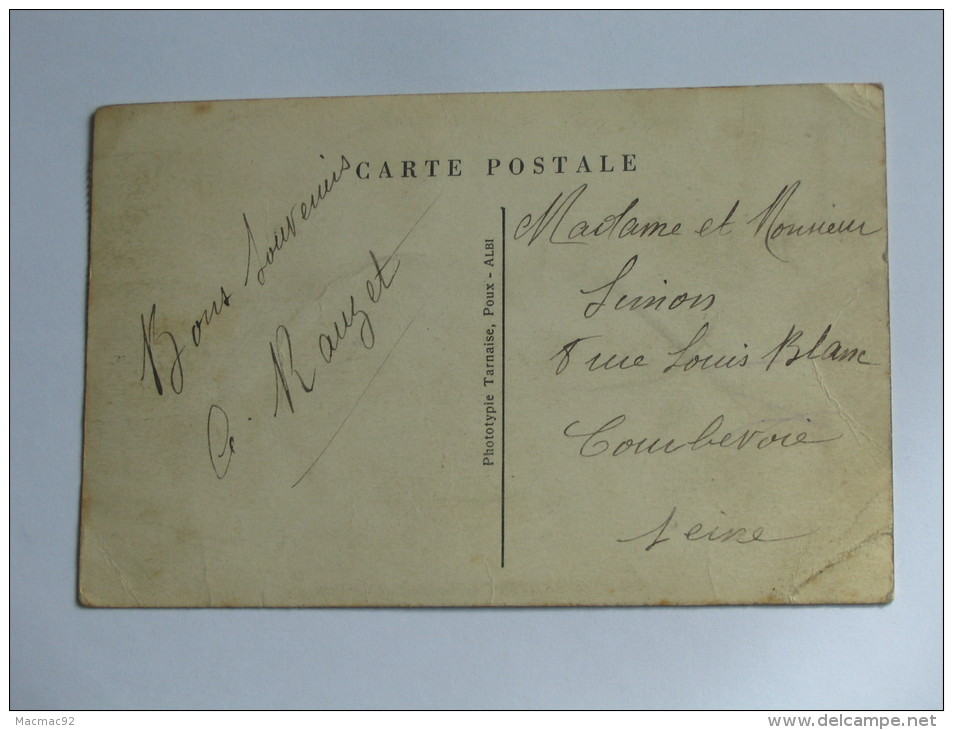 CARTE POSTALE
Bons Souvenirs
A. Rauzet
Phototypie Tarnaise, Poux - ALBI
Madame et Monsieur
Simon
8 rue Louis Blanc
Courbevoie
Seine
Macmac92
www.delcampe.net